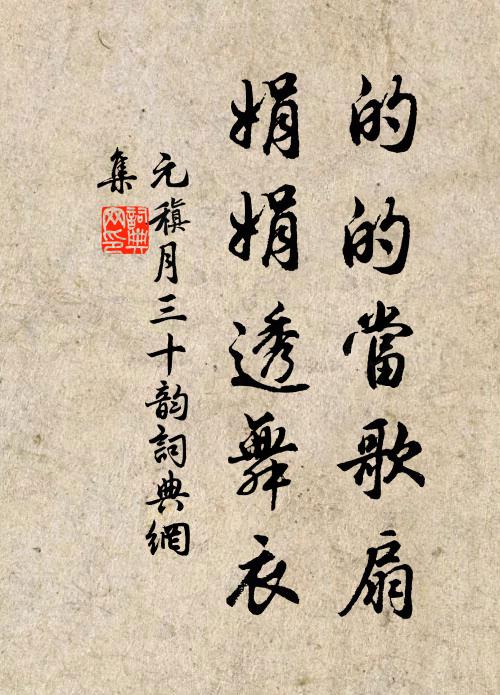 的的當歌扇
娟娟透舞衣
元稹月三十韵詞典網
集
詞典网印